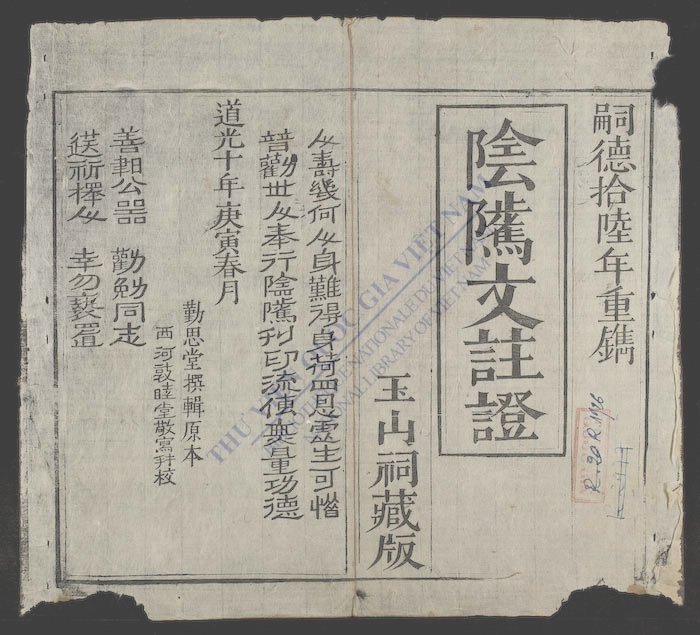 嗣德拾陸年重鐫
陰隲文註證
玉山祠藏版
人壽幾何人身難得身荷四恩虛生可惜
普勸世人奉行陰隲刊印流傳無量功德
道光十年庚寅春月
勤思堂撰輯原本
西河敦睦堂敬寫并校
善公器 勸勉同志
祈擇人 幸勿褻置
THƯ VIỆN QUỐC GIA VIỆT NAM
BIBLIOTHÈQUE NATIONALE DU VIETNAM
NATIONAL LIBRARY OF VIETNAM